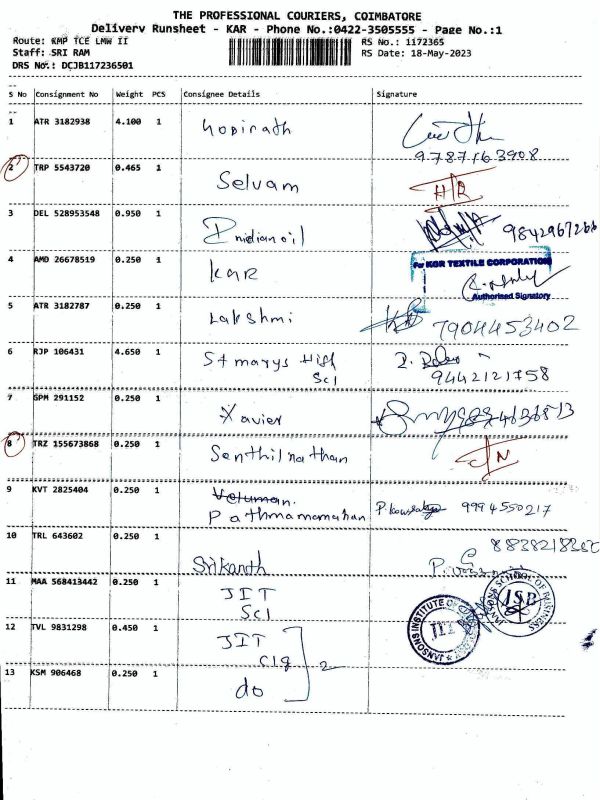 THE PROFESSIONAL COURIERS, COIMBATORE
Delivery Runsheet - KAR - Phone No.:0422-3505555 - Page No.:1
Route: KMP TCE LMW II
RS No.: 1172365
Staff: SRI RAM
RS Date: 18-May-2023
DRS No.: DCJB117236501
S No Consignment No Weight PCS Consignee Details Signature
1 ATR 3182938 4.100 1 Gopinath
9787163908
2 TRP 5543720 0.465 1 Selvam
3 DEL 528953548 0.950 1 Indian oil 9842967266
4 AMD 26678519 0.250 1 KGR
For KGR TEXTILE CORPORATION
Authorised Signatory
5 ATR 3182787 0.250 1 Lakshmi 7904453402
6 RJP 106431 4.650 1 St marys High
Scl 9442121758
7 GPM 291152 0.250 1 Xavier
8 TRZ 155673868 0.250 1 Senthilnathan
9 KVT 2825404 0.250 1
Pathmamamahan 9994550217
10 TRL 643602 0.250 1 Srikanth
11 MAA 568413442 0.250 1 JIT
Scl
JANSONS SCHOOL OF BUSINESS
JSB
12 TVL 9831298 0.450 1 JIT
Clg 2
JANSONS INSTITUTE OF
JIT
13 KSM 906468 0.250 1 do